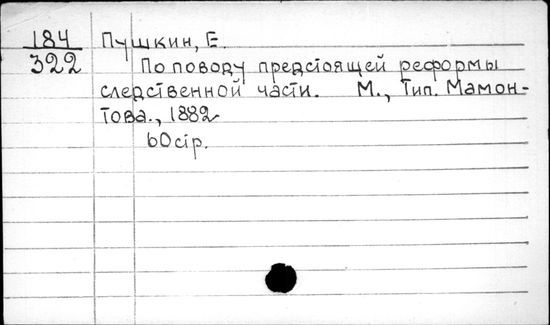 184 Пушкин, Е.
322 По поводу предстоящей реформы
следственной части. М., Тип. Мамон-
това., 1882
60стр.